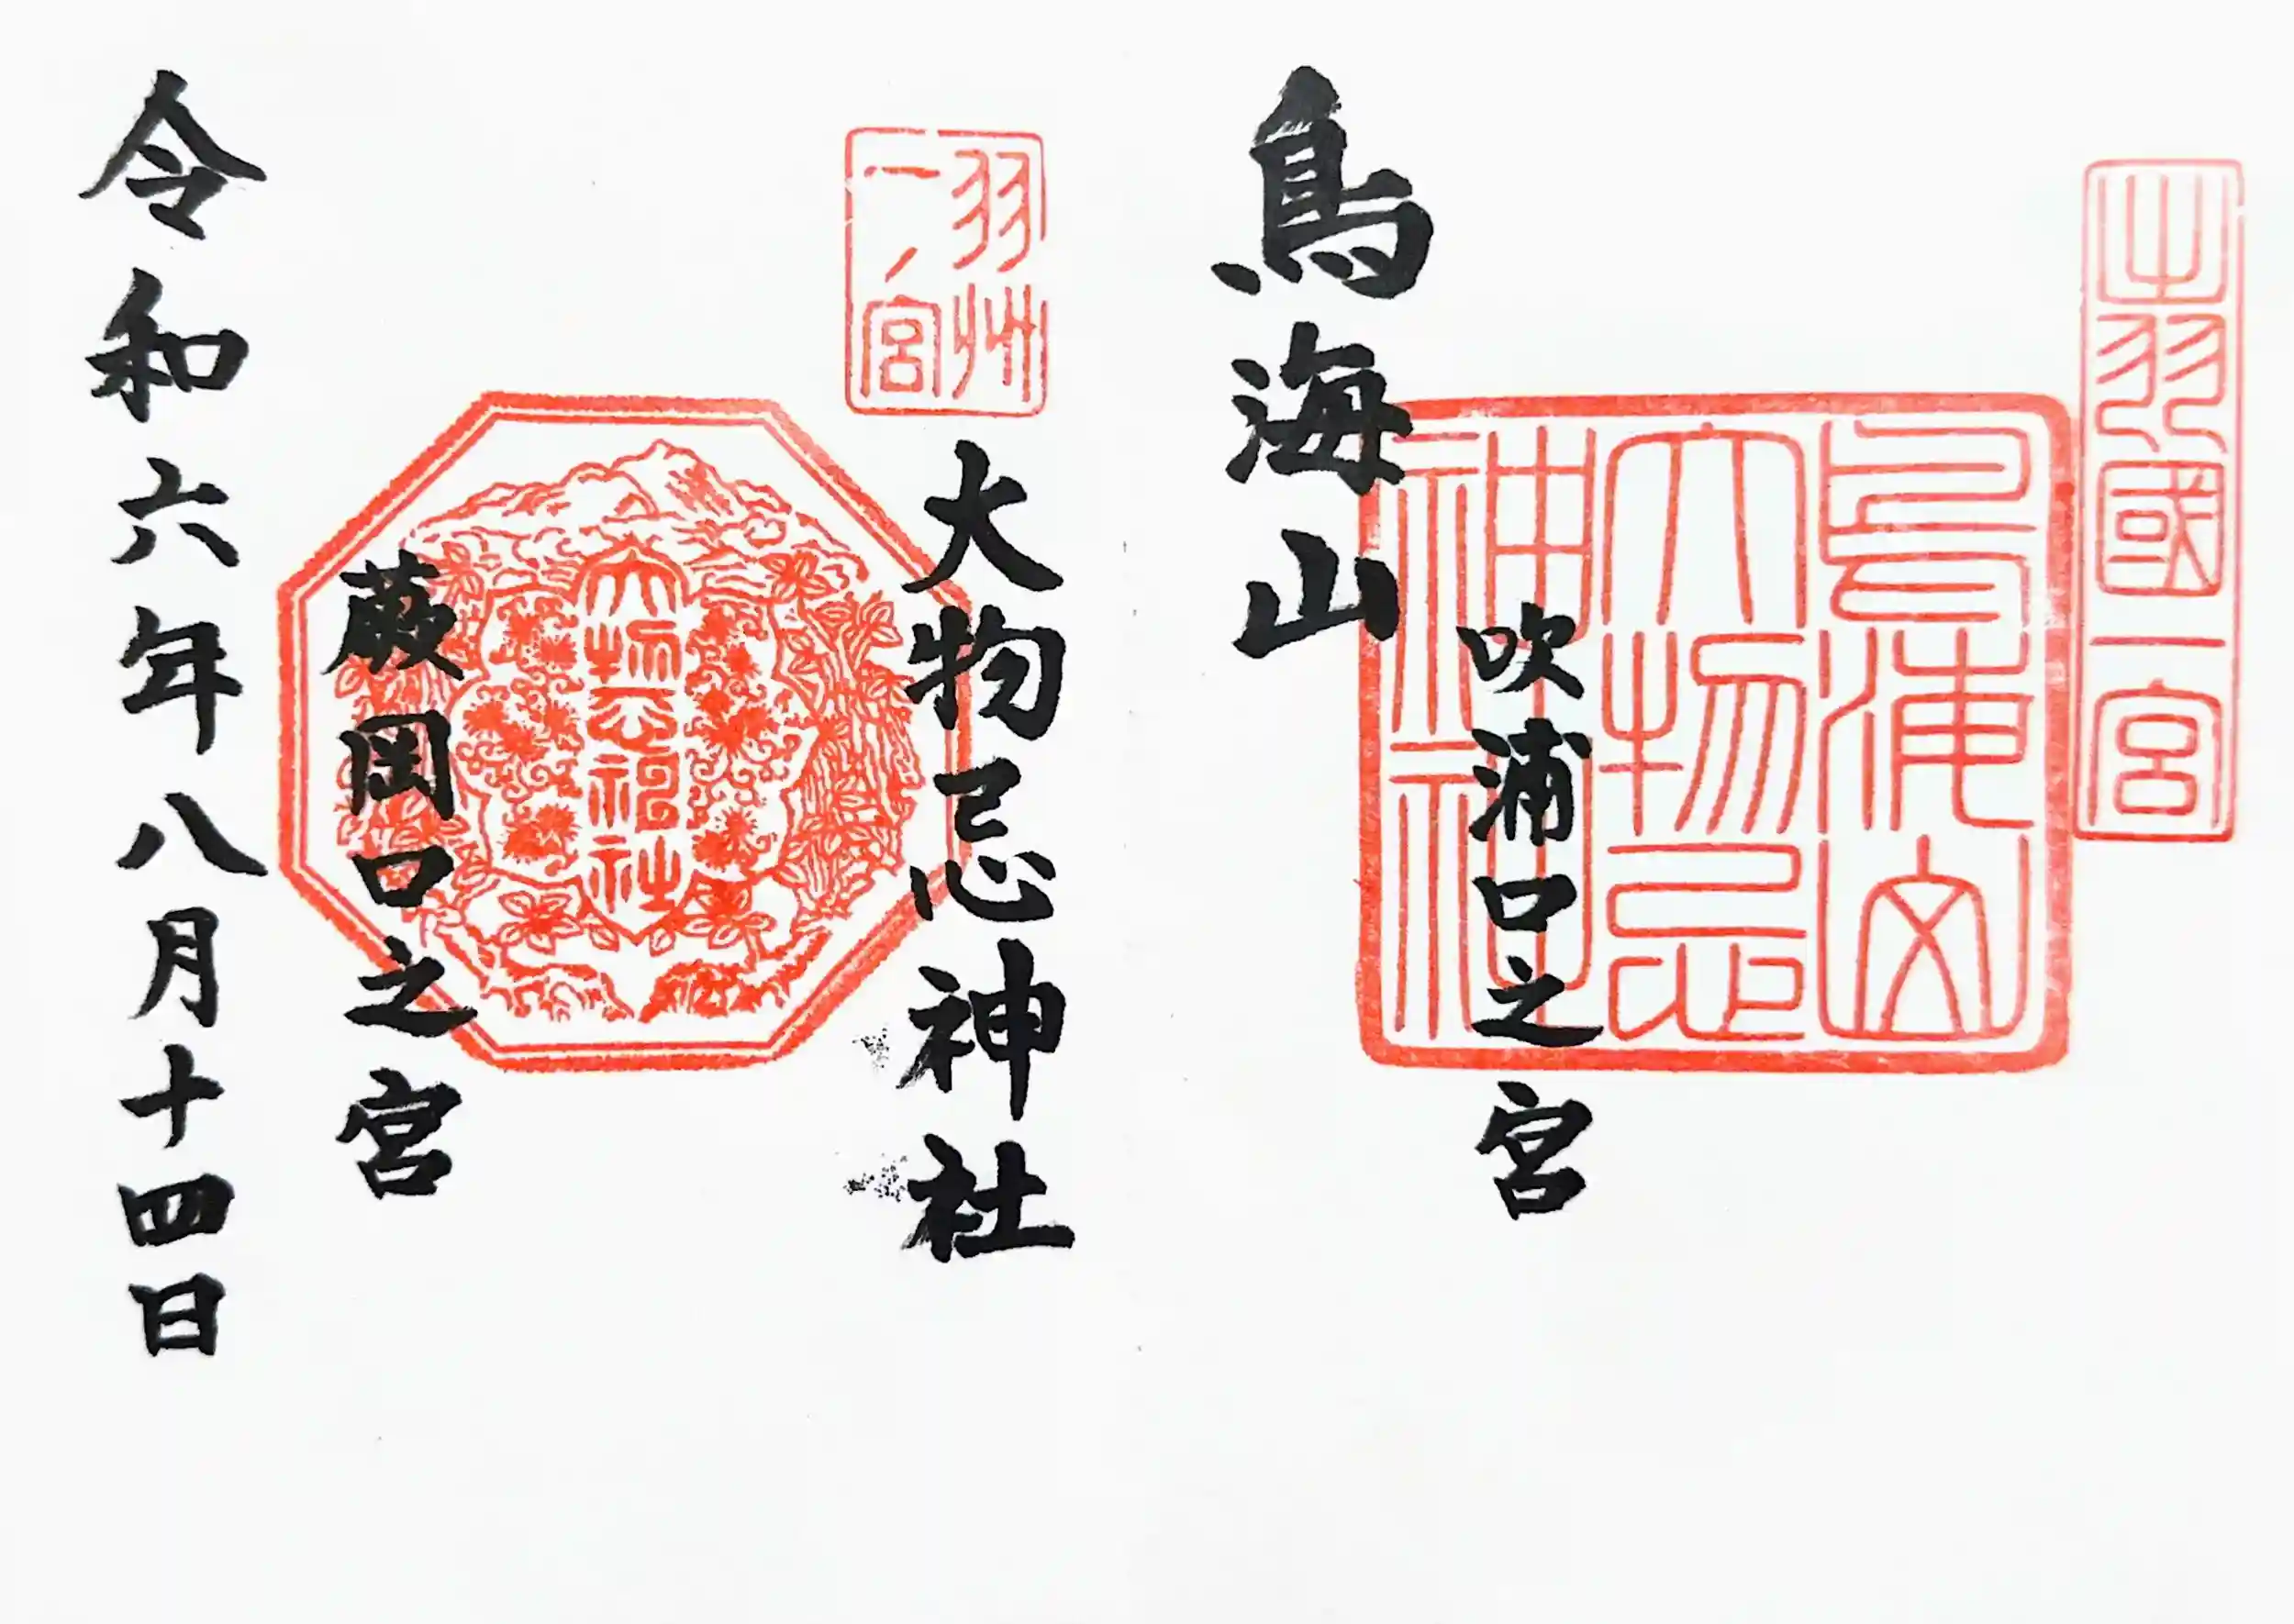 出羽國一宮
鳥海山
大物忌
神社
吹浦口之宮
鳥海山
羽州
一ノ宮
大物忌神社
大物忌神社
蕨岡口之宮
令和六年八月十四日